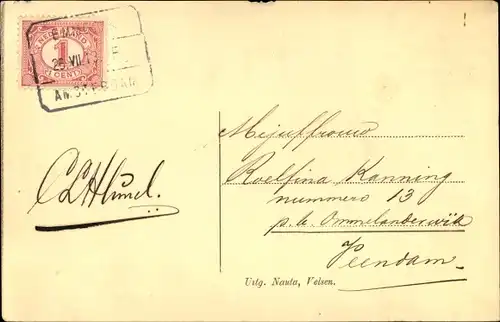 NEDERLAND
1
CENT
25 VII
AMSTERDAM
Mejuffrouw
Roelfina Kanning
nummero 13
p.a. Ommelanderwijk
Veendam.
Uitg. Nauta, Velsen.